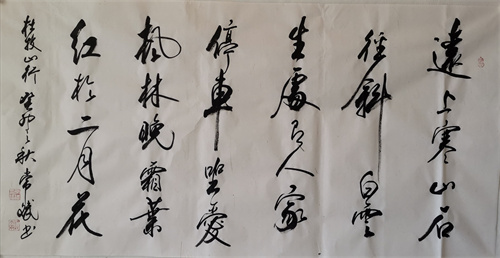 遠上寒山石
徑斜白雲
生處有人家
停車坐愛
楓林晚霜葉
紅於二月花
杜牧山行 癸卯之秋 常書